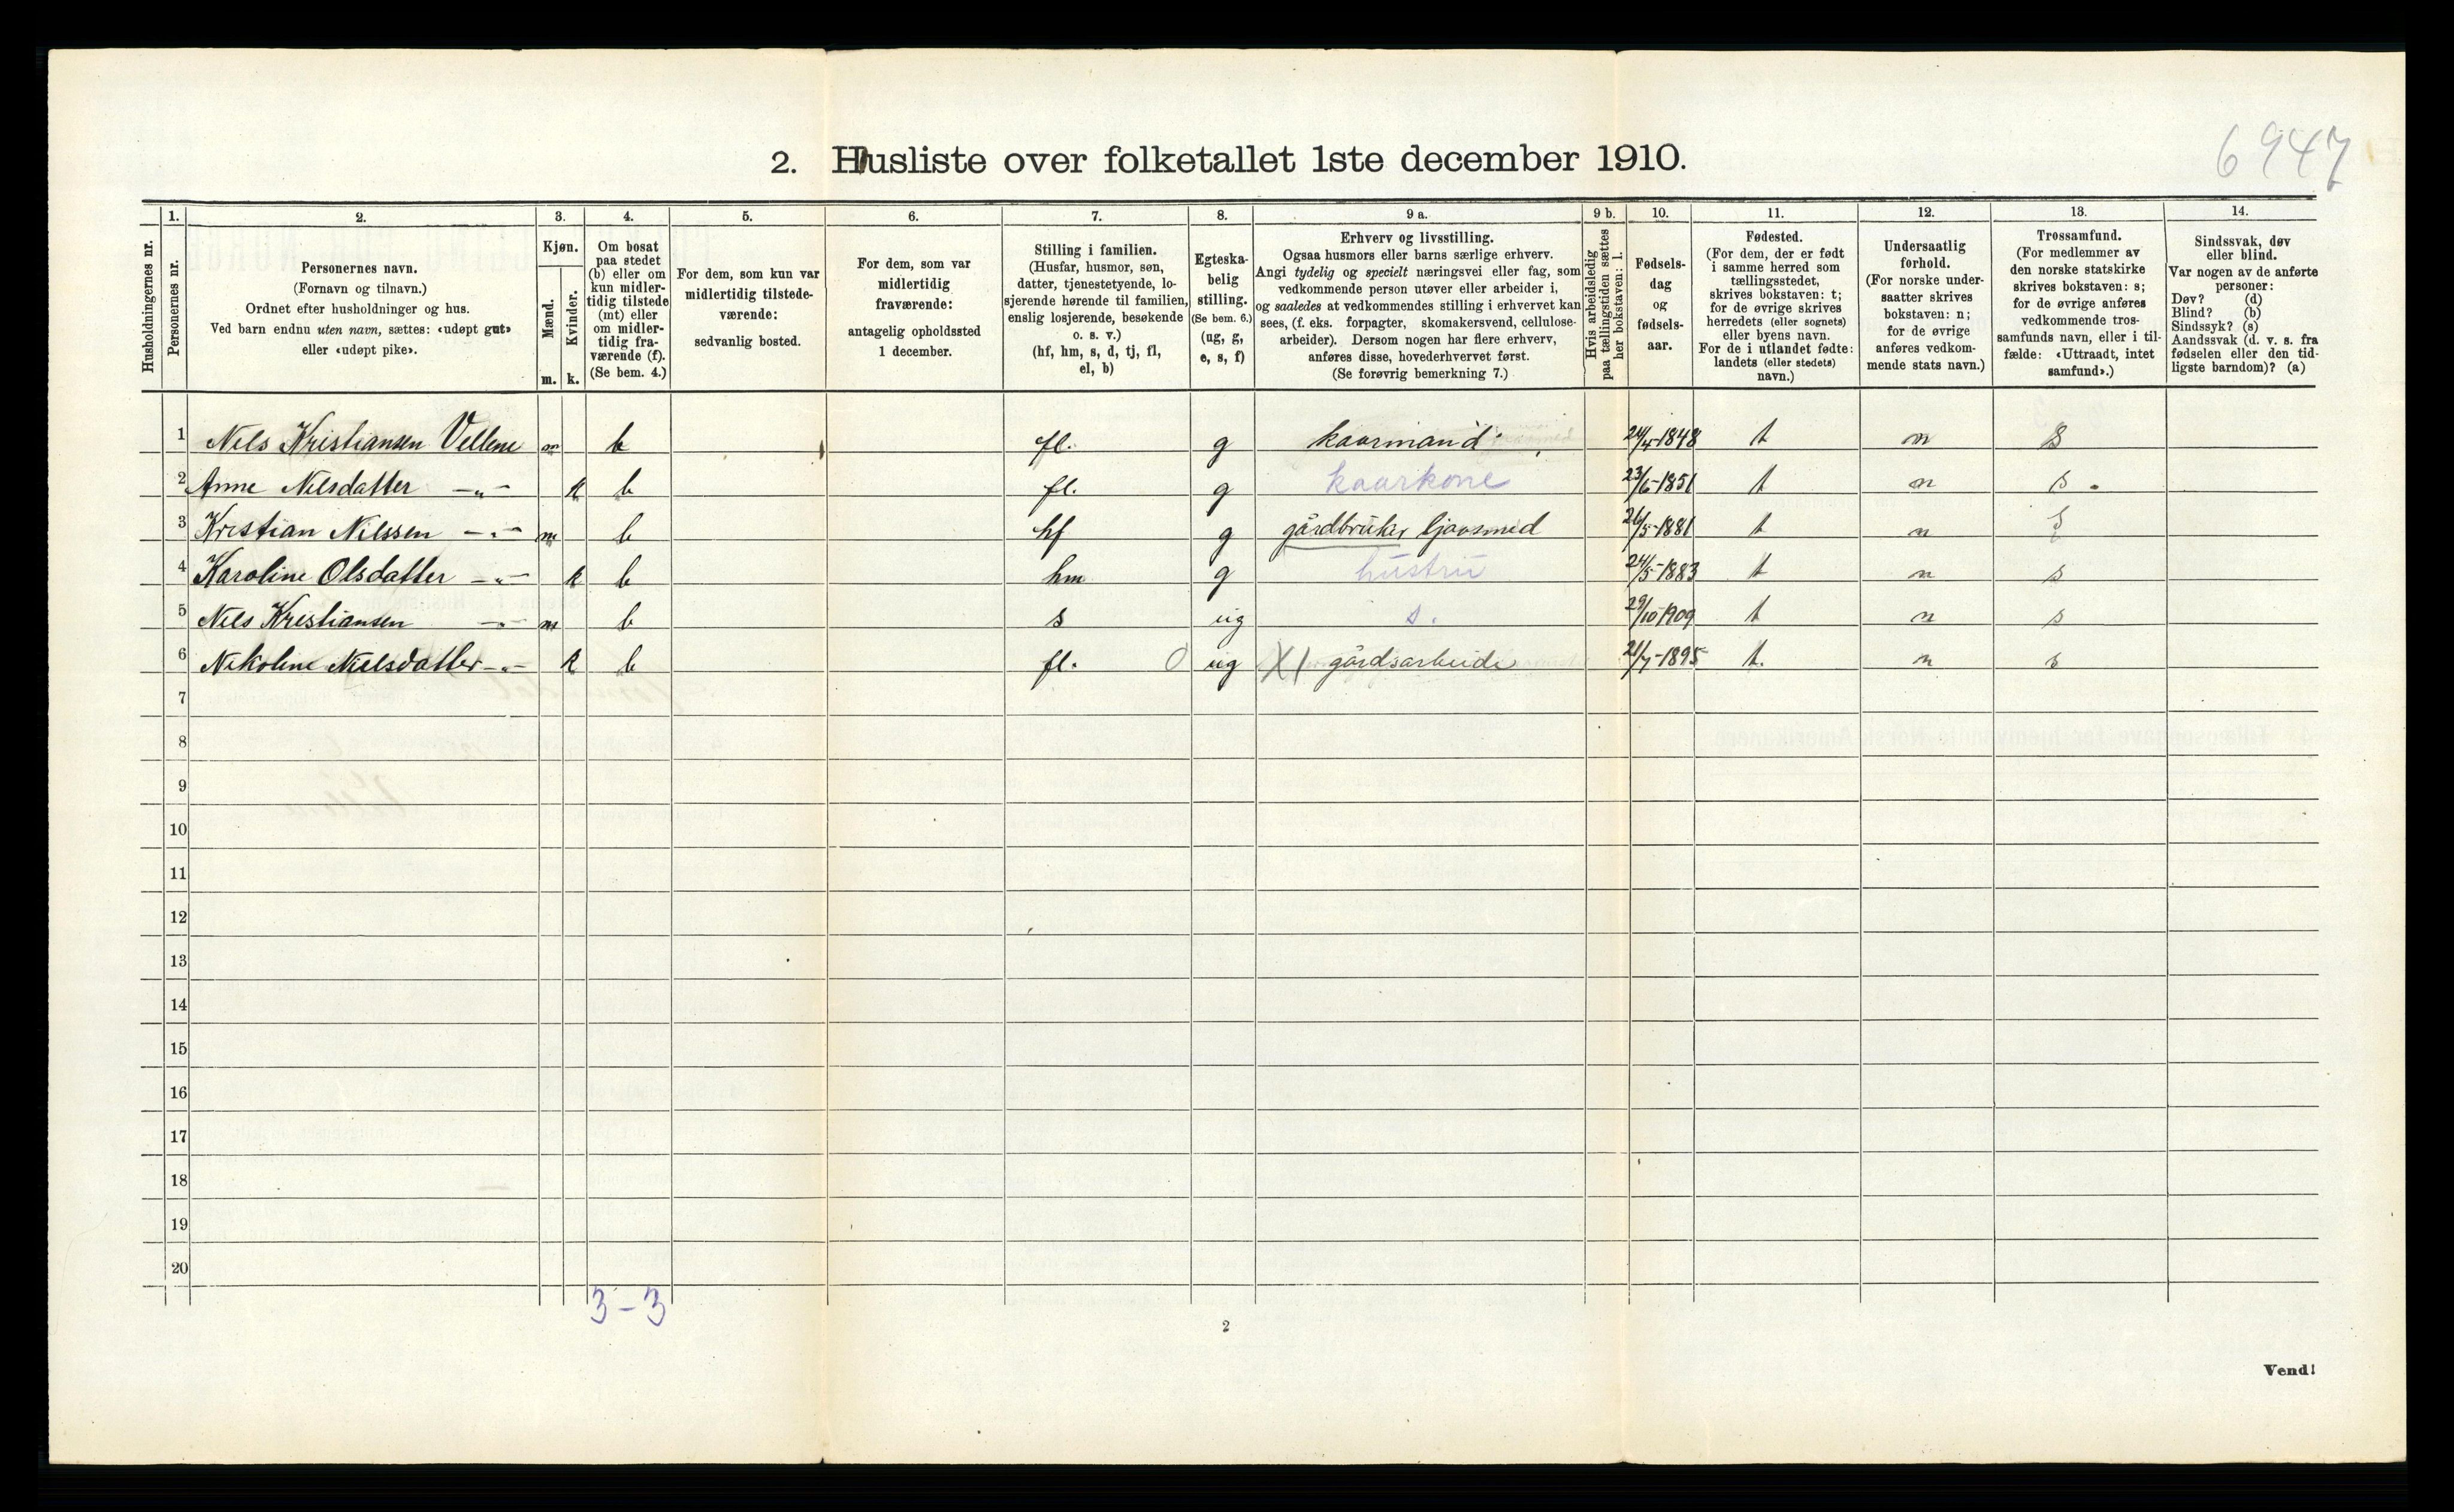 6947
2. Husliste over folketallet 1ste december 1910.
Husholdningernes nr.
1.
Personernes nr.
2.
Personernes navn.
(Fornavn og tilnavn.)
Ordnet efter husholdninger og hus.
Ved barn endnu uten navn, sættes: «udøpt gut»
eller «udøpt pike».
3.
Kjøn.
Mænd.
Kvinder.
m. k.
4.
Om bosat
paa stedet
(b) eller om
kun midler-
tidig tilstede
(mt) eller
om midler-
tidig fra-
værende (f).
(Se bem. 4.)
5.
For dem, som kun var
midlertidig tilstede-
værende:
sedvanlig bosted.
6.
For dem, som var
midlertidig
fraværende:
antagelig opholdssted
1 december.
7.
Stilling i familien.
(Husfar, husmor, søn,
datter, tjenestetyende, lo-
sjerende hørende til familien,
enslig losjerende, besøkende
o. s. v.)
(hf, hm, s, d, tj, fl,
el, b)
8.
Egteska-
belig
stilling.
(Se bem. 6.)
(ug, g,
e, s, f)
9 a.
Erhverv og livsstilling.
Ogsaa husmors eller barns særlige erhverv.
Angi tydelig og specielt næringsvei eller fag, som
vedkommende person utøver eller arbeider i,
og saaledes at vedkommendes stilling i erhvervet kan
sees, (f. eks. forpagter, skomakersvend, cellulose-
arbeider). Dersom nogen har flere erhverv,
anføres disse, hovederhvervet først.
(Se forøvrig bemerkning 7.)
9 b.
Hvis arbeidsledig
paa tællingstiden sættes
her bokstaven: l.
10.
Fødsels-
dag
og
fødsels-
aar.
11.
Fødested.
(For dem, der er født
i samme herred som
tællingsstedet,
skrives bokstaven: t;
for de øvrige skrives
herredets (eller sognets)
eller byens navn.
For de i utlandet fødte:
landets (eller stedets)
navn.)
12.
Undersaatlig
forhold.
(For norske under-
saatter skrives
bokstaven: n;
for de øvrige
anføres vedkom-
mende stats navn.)
13.
Trossamfund.
(For medlemmer av
den norske statskirke
skrives bokstaven: s;
for de øvrige anføres
vedkommende tros-
samfunds navn, eller i til-
fælde: «Uttraadt, intet
samfund».)
14.
Sindssvak, døv
eller blind.
Var nogen av de anførte
personer:
Døv? (d)
Blind? (b)
Sindssyk? (s)
Aandssvak (d. v. s. fra
fødselen eller den tid-
ligste barndom)? (a)
1 Nils Kristiansen Vellene m b fl. g kaarmand 24/4-1848 t n s
2 Anne Nilsdatter —„— k b fl. g kaarkone 23/6-1851 t n s.
3 Kristian Nilssen —„— m b hf g gårdbruker ljaasmed 26/5-1881 t n s
4 Karoline Olsdatter —„— k b hm g hustru 24/5-1883 t n s
5 Nils Kristiansen —„— m b s ug s. 29/10-1909 t n s
6 Nikoline Nielsdatter —„— k b fl. 0 ug X gårdsarbeide 21/7-1895 t. n s
7
8
9
10
11
12
13
14
15
16
17
18
19
20
3-3
2
Vend!